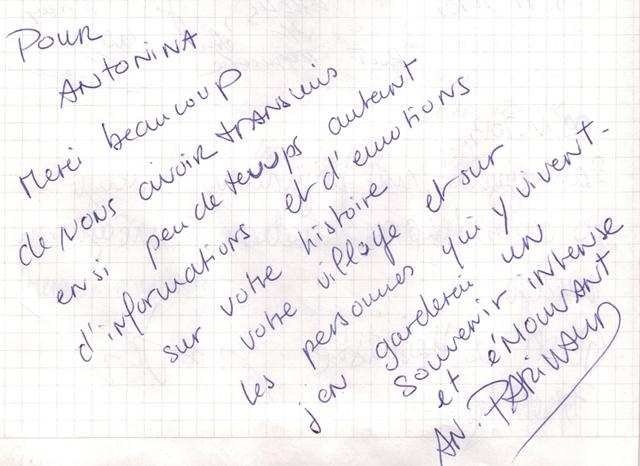 Pour
Antonina
Merci beaucoup
de nous avoir transmis
en si peu de temps autant
d'informations et d'émotions
sur votre histoire
votre village et sur
les personnes qui y vivent.
j'en garderai un
souvenir intense
et émouvant
AN. PARINAUD